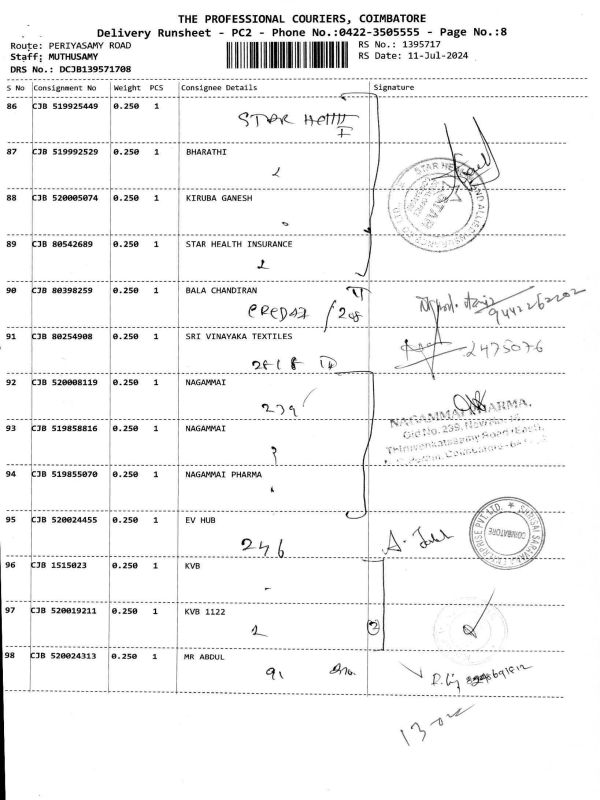 THE PROFESSIONAL COURIERS, COIMBATORE
Delivery Runsheet - PC2 - Phone No.:0422-3505555 - Page No.:8
Route: PERIYASAMY ROAD RS No.: 1395717
Staff: MUTHUSAMY RS Date: 11-Jul-2024
DRS No.: DCJB139571708
S No Consignment No Weight PCS Consignee Details Signature
86 CJB 519925449 0.250 1
STAR
87 CJB 519992529 0.250 1 BHARATHI
88 CJB 520005074 0.250 1 KIRUBA GANESH
89 CJB 80542689 0.250 1 STAR HEALTH INSURANCE
90 CJB 80398259 0.250 1 BALA CHANDIRAN
9442262202
91 CJB 80254908 0.250 1 SRI VINAYAKA TEXTILES
2475076
92 CJB 520008119 0.250 1 NAGAMMAI
239
NAGAMMAI PHARMA,
93 CJB 519858816 0.250 1 NAGAMMAI
94 CJB 519855070 0.250 1 NAGAMMAI PHARMA
95 CJB 520024455 0.250 1 EV HUB
246
COIMBATORE
96 CJB 1515023 0.250 1 KVB
97 CJB 520019211 0.250 1 KVB 1122
2
98 CJB 520024313 0.250 1 MR ABDUL
91